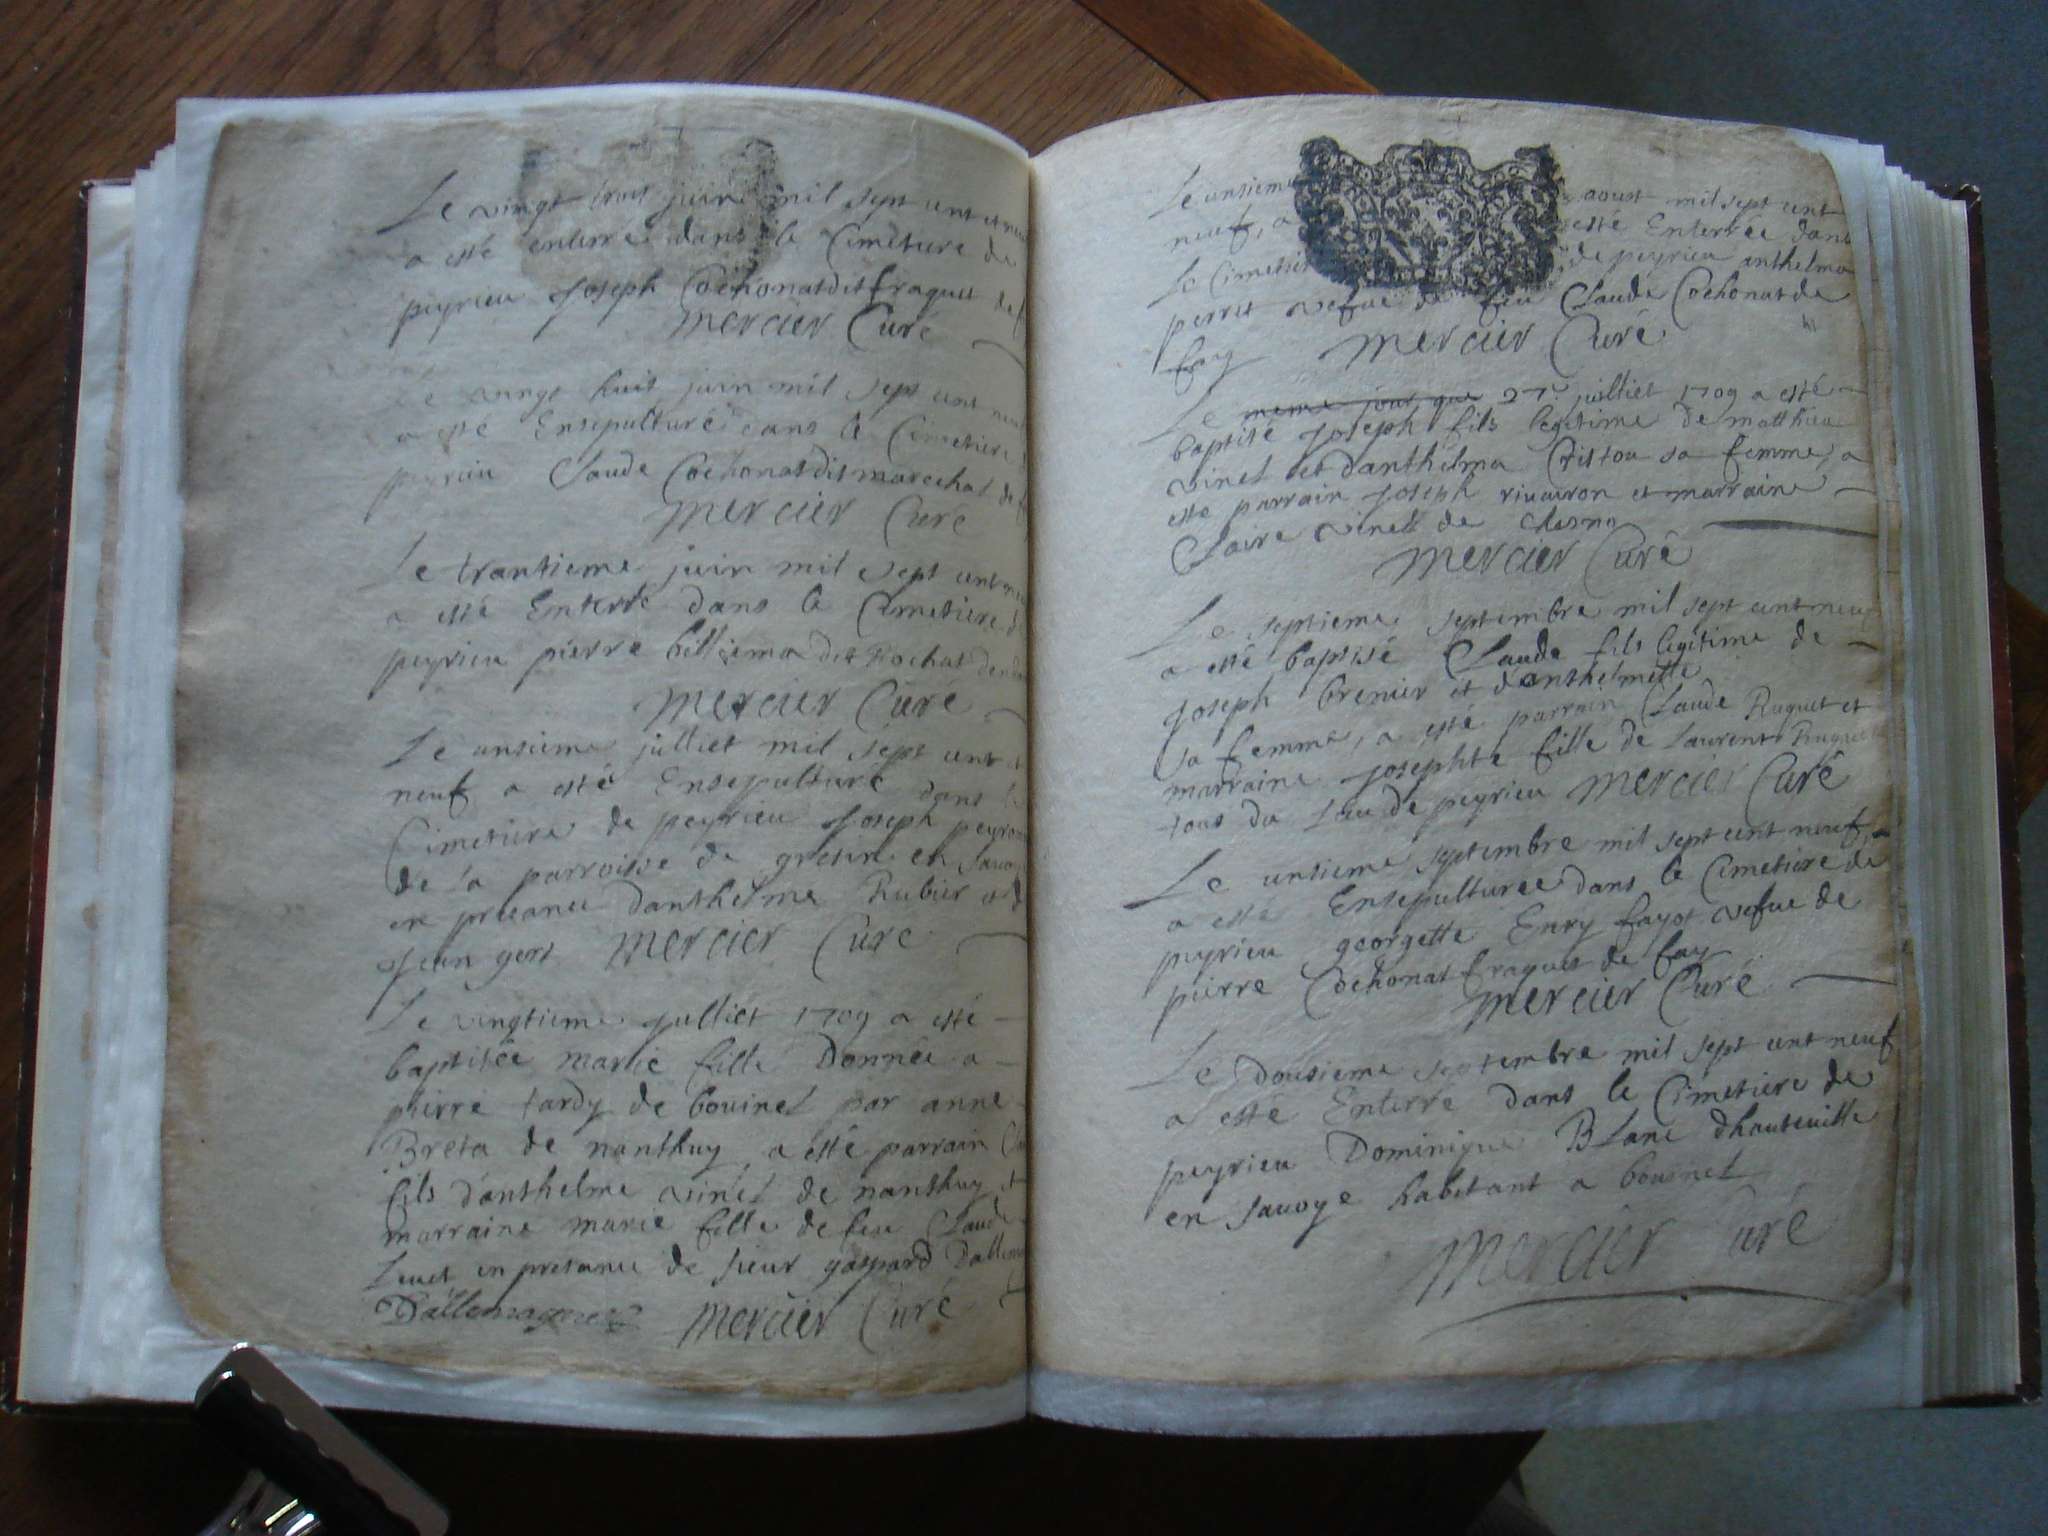 Le vingt trois juin mil sept cent et neu
a esté enterré dans le Cimetiere de
peyrieu Joseph Cochonat dit fraquet de f
mercier Curé
Le vingt huit juin mil sept cent neuf
a esté Ensepulturé dans le Cimetiere
peyrieu Claude Cochonat dit marechal de f
mercier Curé
Le trantieme juin mil sept cent neu
a esté Enterré dans le Cimetiere d
peyrieu pierre billiema dit Rochat
mercier Curé
Le unsieme julliet mil sept cent et
neuf a esté Ensepulturé dans le
Cimetiere de peyrieu Joseph
de la parroisse de gresin en Savoy
en presance danthelme Rubier
Jean gert mercier Curé
Le vingtieme julliet 1709 a esté
baptisée marie fille Donnée a
pierre tardy de bovinel par anne
Breta de nanthuy a esté parrain
fils danthelme vinel de nanthuy et
marraine marie fille de feu Claude
Luet en presance de sieur gaspard Dallema
Dallemagne mercier Curé
Le unsieme aoust mil sept cent
neuf, a esté Enterrée dans
Le Cimetier de peyrieu anthelma
perret vefue de feu Claude Cochonat de
fay mercier Curé
Le meme jour que 27e julliet 1709 a esté
baptisé Joseph fils legitime de matthieu
vinel et danthelma Cristou sa femme, a
esté parrain Joseph rivairon et marraine
Claire vinel de
mercier Curé
Le septieme septembre mil sept cent neuf
a esté baptisé Claude fils legitime de
Joseph brenier et danthelmette
sa femme, a esté parrain Claude Ruquet et
marraine Josephte fille de Laurent Ruquet
tous du Lau de peyrieu mercier Curé
Le unsieme septembre mil sept cent neuf,
a esté Ensepulturée dans le Cimetiere de
peyrieu georgette Enry fayot vefue de
pierre Cochonat fraquet de fay
mercier Curé
Le dousieme septembre mil sept cent neuf
a esté Enterré dans le Cimetiere de
peyrieu Dominique Blanc dhauteville
en savoye habitant a bovinel
mercier Curé